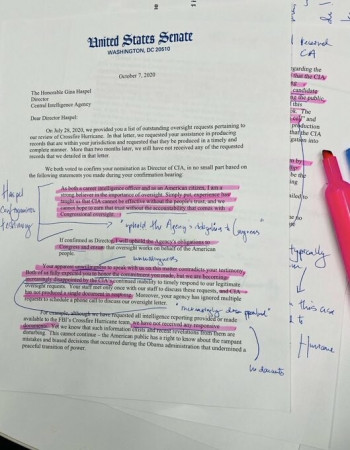 United States Senate
WASHINGTON, DC 20510
October 7, 2020
The Honorable Gina Haspel
Director
Central Intelligence Agency
Dear Director Haspel:
On July 28, 2020, we provided you a list of outstanding oversight requests pertaining to
our review of Crossfire Hurricane. In that letter, we requested your assistance in producing
records that are within your jurisdiction and requested that they be produced in a timely and
complete manner. More than two months later, we still have not received any of the requested
records that we detailed in that letter.
We both voted to confirm your nomination as Director of CIA, in no small part because of
the following statements you made during your confirmation hearing:
Haspel
Confirmation
Hearing
As both a career intelligence officer and as an American citizen, I am a
strong believer in the importance of oversight. Simply put, experience has
taught us that CIA cannot be effective without the people's trust, and we
cannot hope to earn that trust without the accountability that comes with
Congressional oversight.
"uphold the Agency's obligations to Congress"
If confirmed as Director, I will uphold the Agency's obligations to
Congress and ensure that oversight works on behalf of the American
people.
unwillingness
Your apparent unwillingness to speak with us on this matter contradicts your testimony.
Both of us fully expected you to honor the commitment you made, but we are becoming
increasingly disappointed by the CIA's continued inability to timely respond to our legitimate
oversight requests. Your staff met only once with our staff to discuss their requests, and CIA
has not produced a single document in response. Moreover, your agency has ignored multiple
requests to schedule a phone call to discuss our oversight letter.
"increasingly disappointed"
For example, although we have requested all intelligence reporting provided or made
available to the FBI's Crossfire Hurricane team, we have not received any responsive
documents. Yet we know that such information exists and recent revelations from them are
disturbing. This cannot continue – the American public has a right to know about the rampant
mistakes and biased decisions that occurred during the Obama administration that undermined a
peaceful transition of power.
no documents
received
CIA
regarding the
that the CIA
candidate
the public
The
production
that the CIA
by
typically
in this case
to
Hurricane